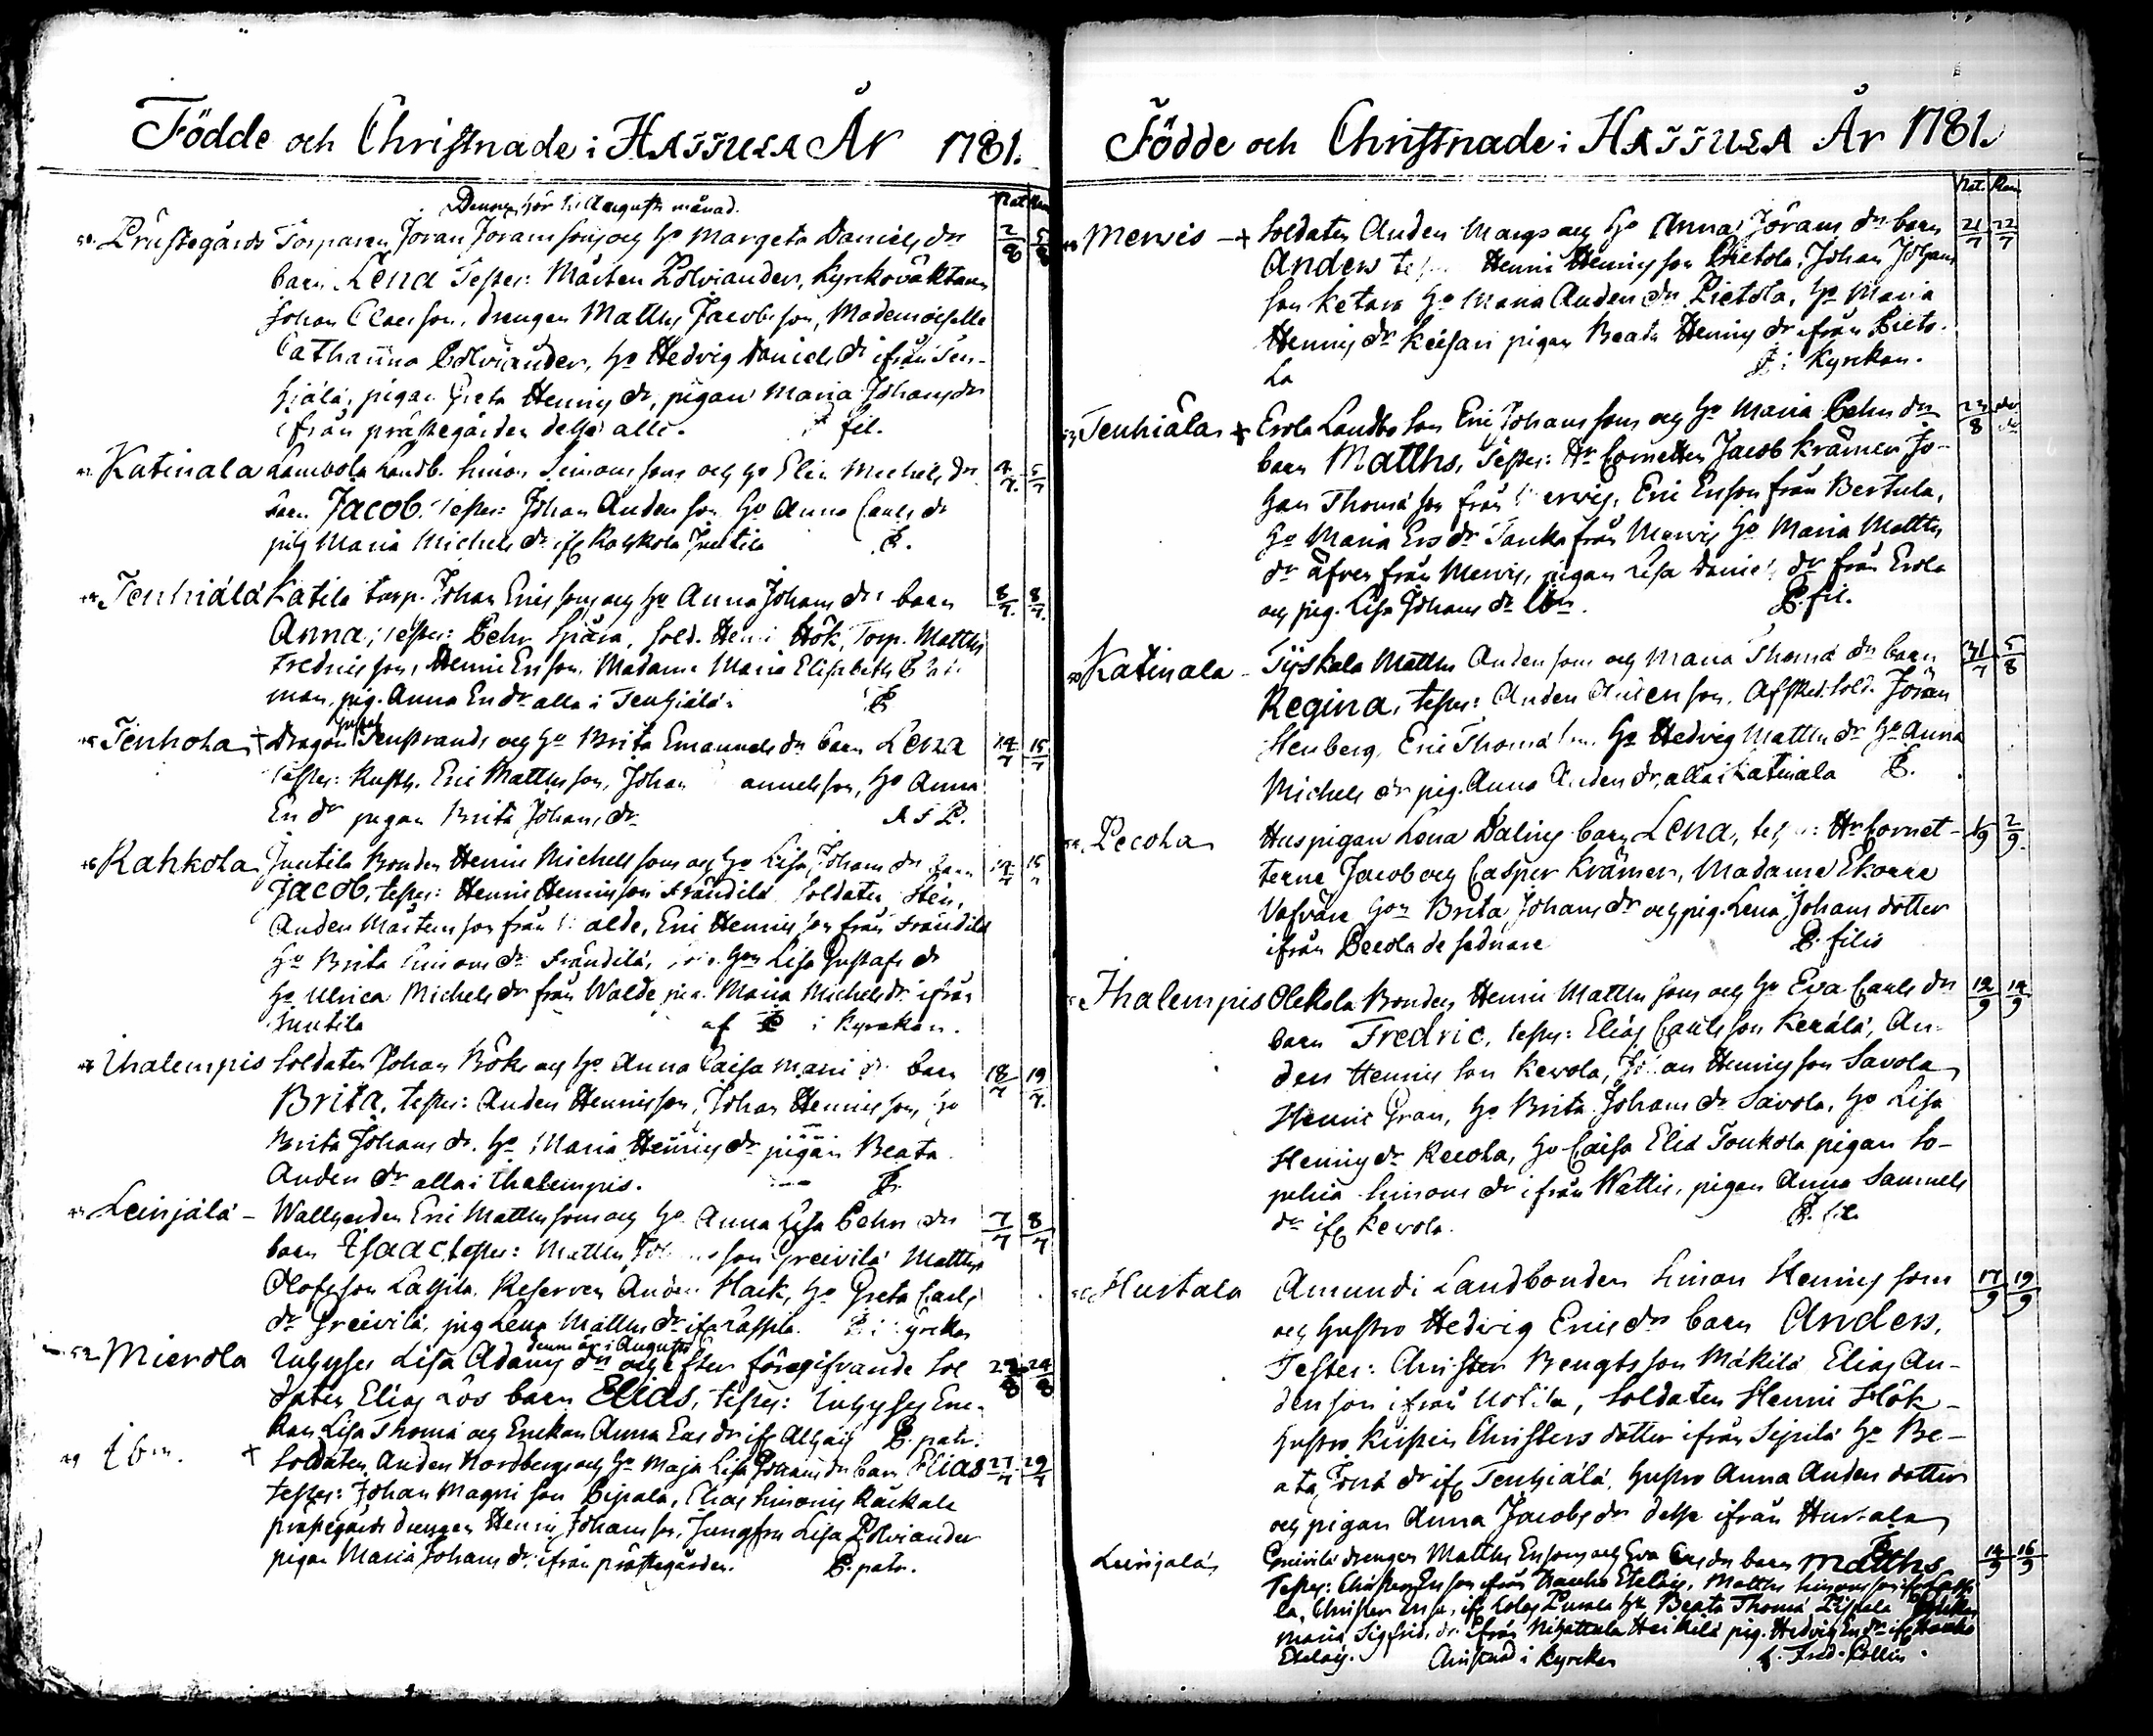 Födde och Christnade i HATTULA År 1781.
Denna hör til Augusti månad.
Nat. Ren.
Prästegårds Torparen Jöran Jöransson och H. Margeta Daniels dr 2/8
barn Lena Testes: Mårten Polviander, Kyrkoväktaren
Johan Claesson, drengen Matths Jacobsson, Mademoiselle
Catharina Polviander, H. Hedvig Daniels dr ifrån Ten-
hiälä, pigan Greta Henrics dr, pigan Maria Johans dr
ifrån prästegården desse alle. fil.
Katinala Lambola Landb. Simon Simons son och H. Elin Michels dr 4/7 5/7
barn Jacob. Testes: Johan Anders son H. Anna Carls dr
pig Maria Michels dr if Rahkola Juutila P.
Tenhiälä Katila torp. Johan Erics son och H. Anna Johans dr barn 8/7 8/7
Anna; testes: Pehr Spåra, Sold. Henric Hök, Torp. Matths
Fredricsson, Henric Ersson, Madame Maria Elisabeth
man, pig. Anna Ers dr alla i Tenhiälä. P.
Tenhola + Dragon Gustaf Tenstrands och H. Brita Emanuels dr barn Lena 14/7 15/7
Testes: Rusth. Eric Matthsson, Johan annelsson, H. Anna
Ers dr pigan Brita Johans dr A S P.
Rahkola Juutila Bonden Henric Michels son och H. Lisa Johans dr barn 14/7 15
Jacob, testes: Henric Henricsson Frändilä Soldaten Sten,
Anders Mårtensson från alde, Eric Henricsson från Frändilä
H. Brita Simons dr Frändilä, H. Lisa Gustafs dr
H. Ulrica Michels dr från Walde, pig. Maria Michels dr ifrån
Juutila af P i Kyrckan.
Ihalempis Soldaten Johan Böks och H. Anna Caisa Mans dr barn 18/7 19/7
Brita, testes: Anders Henricsson, Johan Henricsson, H.
Brita Johans dr. H. Maria Henrics dr pigan Beata
Anders dr alla i Ihalempis. P.
Leinjälä - Wallherden Eric Matths son och H. Anna Lisa Pehrs dr 7/7 8/7
barn Isaac, testes: Matths son Greivilä Matths
Olofsson Lassila, Reserven Anders Hack, H. Greta Carls
dr Greivilä, pig Lena Matths dr ifrå Lassila. P. i Kyrckan
denna är i Augusti
Mierola Inhyses Lisa Adams dr och efter föregifvande Sol 22/8 24/8
daten Elias Lös barn Elias, testes: Inhyses En-
kan Lisa Thoma och Enckan Anna Ers dr if Alhais P. patr.
Ibm. + Soldaten Anders Nordbergs och H. Maja Lisa Johans dr barn Elias 27/7 29/7
testes: Johan Magni son Pispala, Elias Simonis Räikälä
prästegårds drengen Henric Johansson, Jungfru Lisa Polviander
pigan Maria Johans dr ifrån prästegården. P. patr.
Födde och Christnade i HATTULA År 1781.
Nat. Ren.
Mervis - + Soldaten Anders Mangs och H. Anna Jörans dr barn 21/7 22/7
Anders tes Henric Henricsson Pietola, Johan Johans
son Ketara H. Maria Anders dr Pietola, H. Maria
Henrics dr Keisari pigan Beata Henrics dr ifrån Pieto-
la P. i Kyrckan.
Tenhiälä + Erola Landbo son Eric Johans sons och H. Maria Pehrs dr 23/8 do
barn Matths, Testes: Hr Cornetten Jacob Krämer Jo-
han Thomasson från ervis, Eric Ersson från Bertula,
H. Maria Ers dr Tanka från Mervis H. Maria Matths
dr äfven från Mervis, pigan Lisa Daniels dr från Erola
och pig. Lisa Johans dr Ibm. P. fil.
Katinala - Tyskala Matths Anders sons och Maria Thoma dr barn 31/7 5/8
Regina, testes: Anders Andersson, Afsked. Sold. Jöran
Stenberg, Eric Thoma son H. Hedvig Matths dr H. Anna
Michels dr pig. Anna Anders dr, alla i Katinala P.
Pecola Huspigan Lena Dalins barn Lena, tes: Hr Cornet- 1/9 2/9
terne Jacob och Casper Krämer, Madame Ekorre
Vafvare H. Brita Johans dr och pig. Lena Johans dotter
ifrån Pecola de sednare P. filis
Ihalempis Olckola Bonden Henric Matths sons och H. Eva Carls dr 12/9 14/9
barn Fredric, testes: Elias Carlsson Kerälä, An-
ders Henrics son Kerola, Johan Henricsson Savola
Henric Gran, H. Brita Johans dr Savola, H. Lisa
Henrics dr Recola, H. Caisa Elia Toukola pigan So-
phia Simons dr ifrån Wattis, pigan Anna Samuels
dr if Kerola. P. fil.
Hurtala Amundi Landbonden Simon Henrics sons 17/9 19/9
och hustru Hedvig Erics dr barn Anders,
Testes: Christer Bengtsson Mäkilä Elias An-
dersson ifrån, Soldaten Henric Hök -
hustru Kirstin Christers dotter ifrån Sipilä H. Be-
ata Jona dr if Tenhiälä, hustru Anna Anders dotter
och pigan Anna Jacobs dr desse ifrån Hurtala
Leinjälä Greivilä drengen Matths Erssons och Eva Ers dr barn Matths 14/9 16/9
Testes: Christer Ersson ifrån Hauho Eteläis, Matths Simonsson if Lassi-
la, Christer if H. Beata Thoma Pispala
Maria Sigfrids dr ifrån Nihattula Heikilä pig. Hedvig Ers dr if Hauho
Eteläis. Christnad i Kyrckan A. Fred. Pollin.